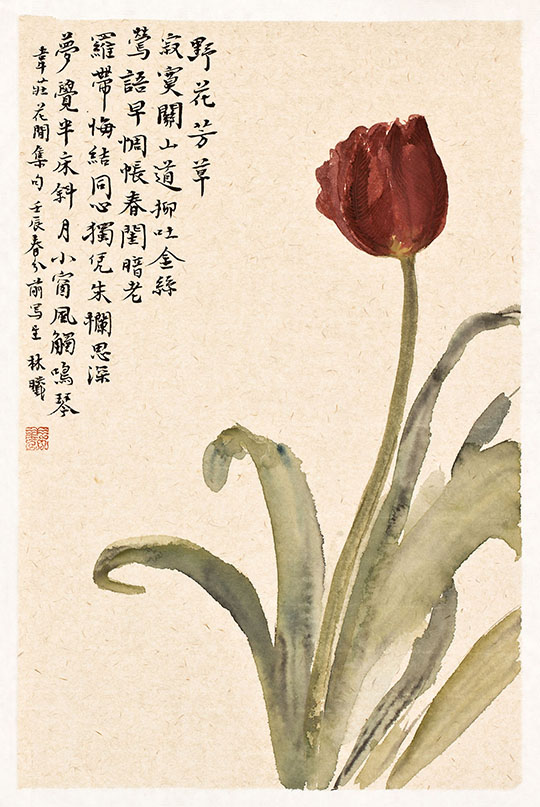 野花芳草
寂寞關山道柳吐金絲
鶯語早惆悵春閨暗老
羅帶悔結同心獨凭朱欄思深
夢覺半床斜月小窗風觸鳴琴
韋莊花間集句壬辰春分前写生林曦